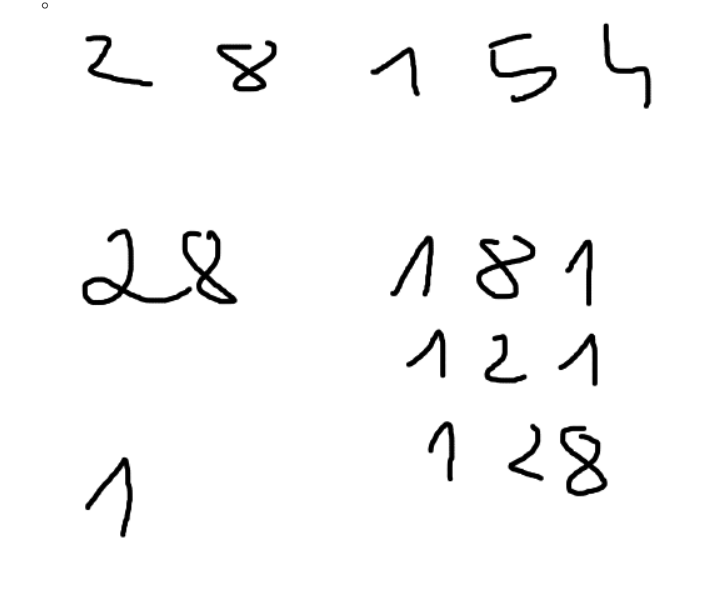 2 8 1 5 4
28 181
121
128
1